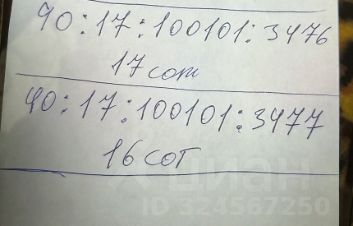 90:17:100101:3476
17 сот
90:17:100101:3477
16 сот
ЦИОН
ID 324567250